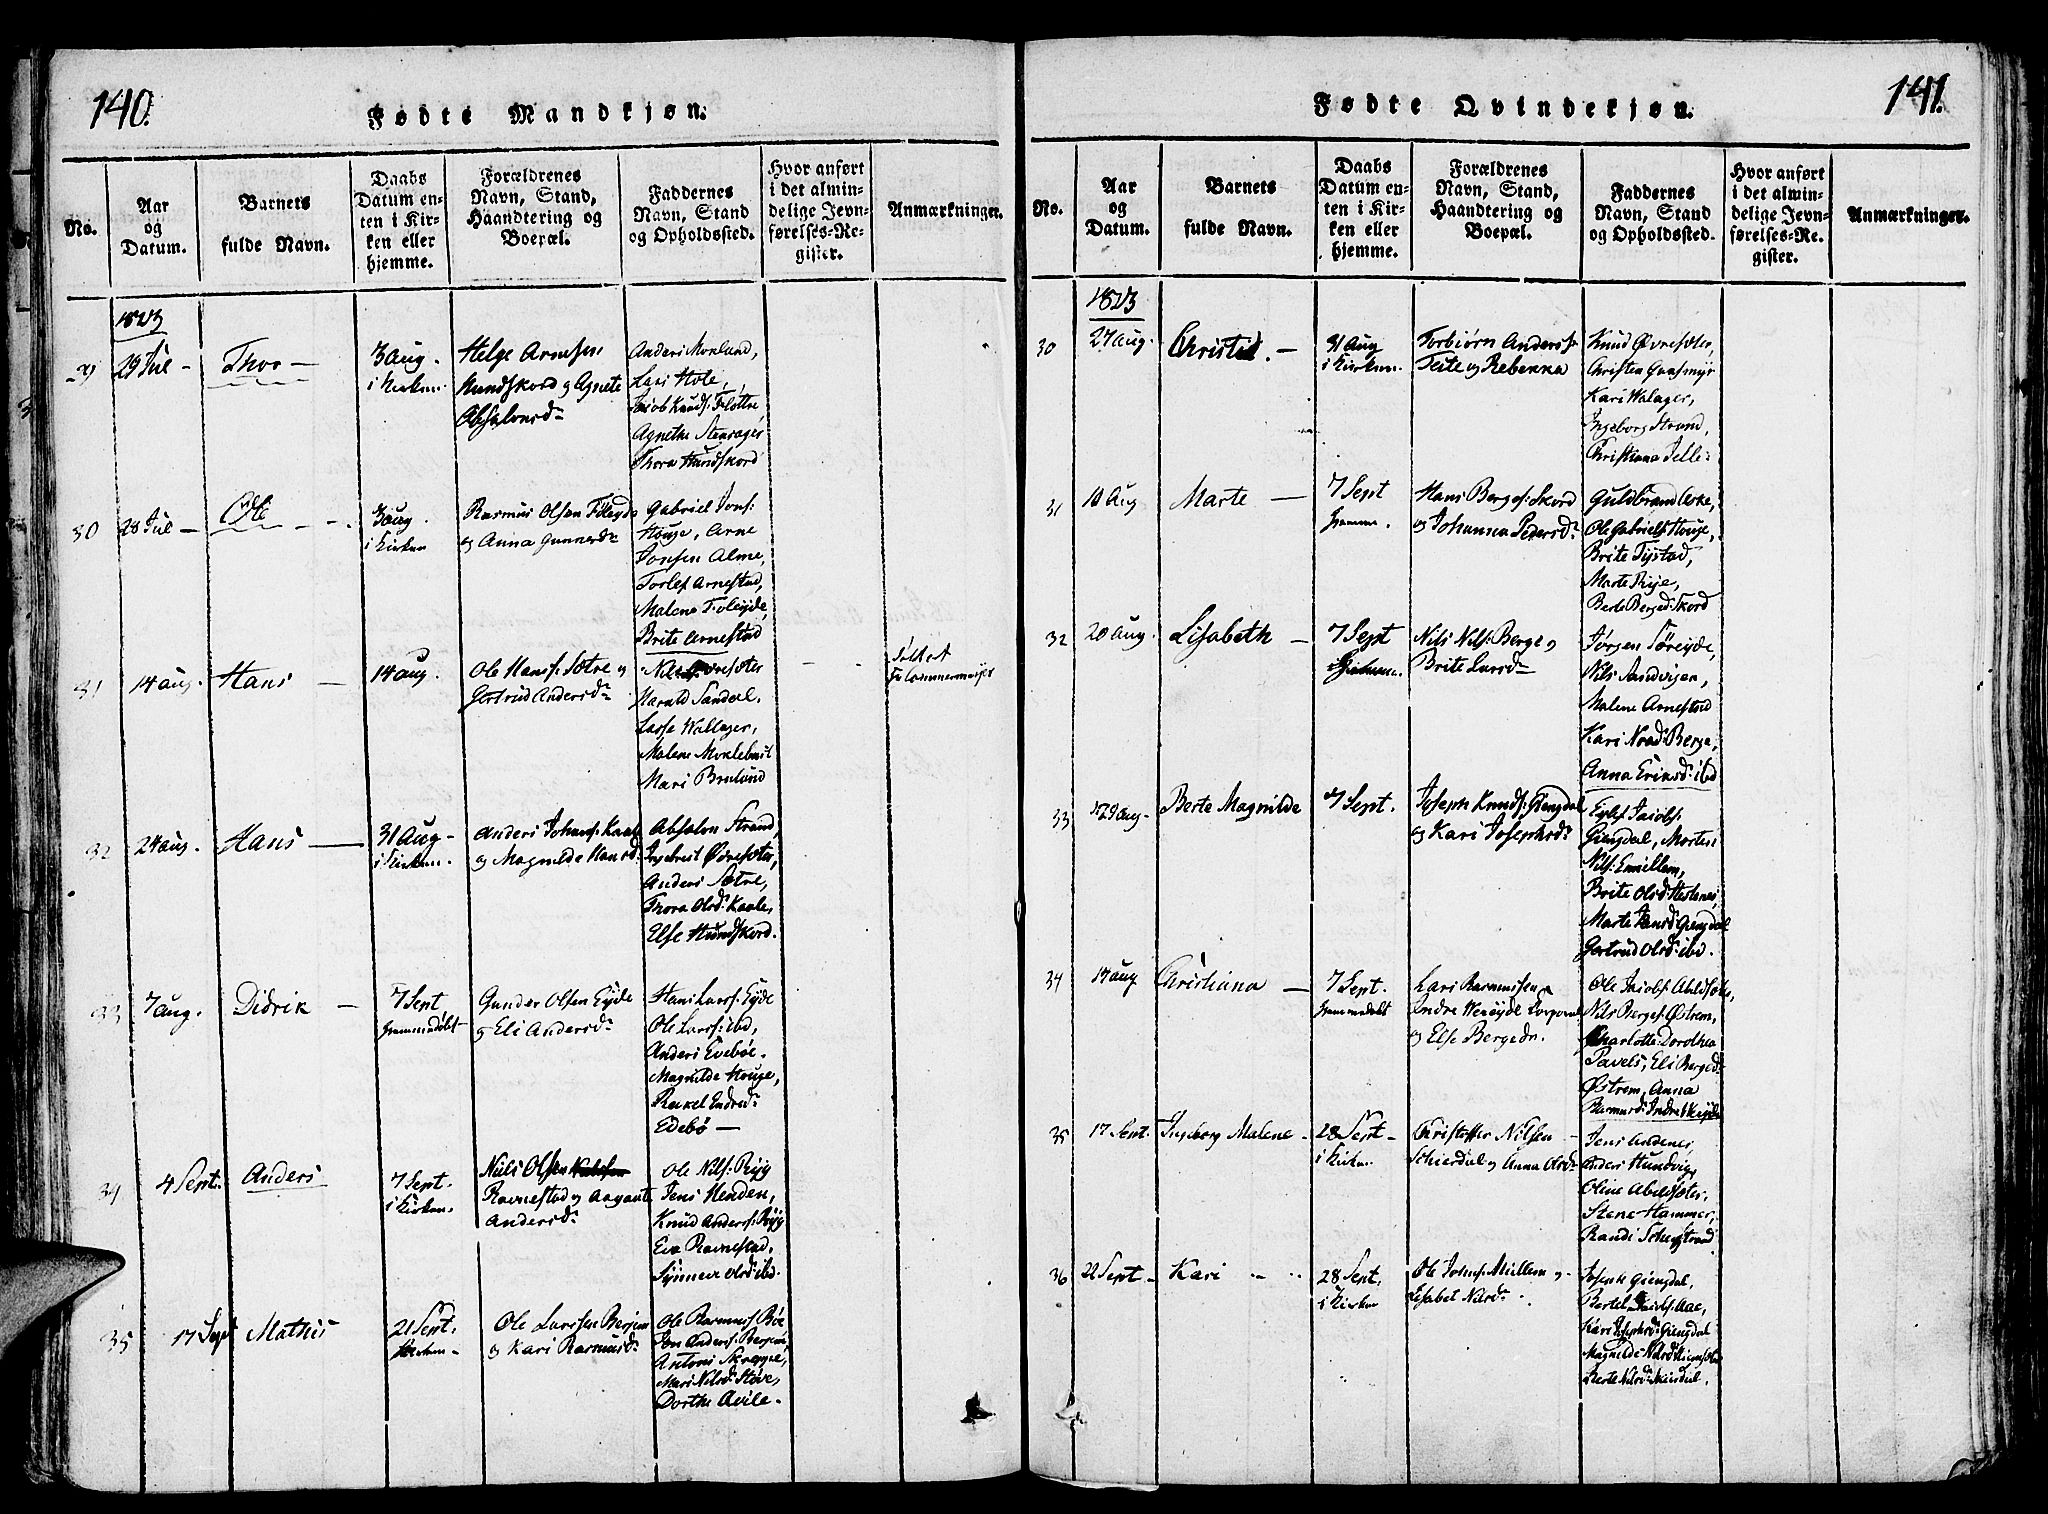 140.
Fødte Mandkjøn.
No.
Aar
og
Datum.
Barnets
fulde Navn.
Daabs
Datum en-
ten i Kir-
ken eller
hjemme.
Forældrenes
Navn, Stand,
Haandtering og
Boepæl.
Faddernes
Navn, Stand
og Opholdssted.
Hvor anført
i det almin-
delige Jevn-
førelses-Re-
gister.
Anmærkninger.
1823
29
29 Jul -
Thor -
3 Aug.
i Kirken.
Helge Arnesen
Hundskord og Agnete
Absalonsd
Anders
Lars Hole,
Jacob Knuds: Flottre,
Agnethe
Thora Hundskord
30
28 Jul -
Ole
3 Aug.
i Kirken
Rasmus Olsen Foleyde
og Anna Gunnersd
Gabriel Jons:
Houge, Arne
Jonsen Alme,
Torlef Arnestad,
Malene Foleyde,
Brite Arnestad
31
14 Aug.
Hans -
14 Aug.
Ole Hans: Sætre og
Gertrud Andersd
Øvresæter
Harald Sandal,
Lasse Wallager,
Malene
Mari Brulund
32
24 Aug.
Hans
31 Aug -
i Kirken.
Anders Johans: Kaale
og Magnilde Hansd:
Absalon Strand,
Ingebret Øvresæter,
Anders Sætre,
Thora Olsd: Kaale,
Else Hundskord.
33
7 Aug.
Didrik -
7 Sept
hjemmedøbt
Gunder Olsen Eyde
og Eli Andersd
Hans Larss: Eyde
Ole Larss: ibd,
Anders Evebøe.
Magnilde Houge,
Rakel Endresd
Edebø -
34
4 Sept.
Anders
7 Sept.
i Kirken.
Niels Olsen
Ravnestad og
Andersd
Ole Nils: Ryg
Jens Henden,
Knud Anderss: Ryg
Eva Ravnestad,
Synneve Olsd: ibd.
35
17 Sept
Mathis
21 Sept.
Kirken -
Ole Larssen
og Kari Rasmusd
Ole Rasmuss Bøe
Jon Anderss:
Antoni Skreppe,
Mari Nilsd: Støve,
Dorthe Avile.
141.
Fødte Qvindekjøn.
No.
Aar
og
Datum.
Barnets
fulde Navn.
Daabs
Datum en-
ten i Kir-
ken eller
hjemme.
Forældrenes
Navn, Stand,
Haandtering og
Boepæl.
Faddernes
Navn, Stand
og Opholdssted.
Hvor anført
i det almin-
delige Jevn-
førelses-Re-
gister.
Anmærkninger.
1823
30
27 Aug.
Christi -
31 Aug
i Kirken.
Torbiørn Anderss:
Teite og Rebekka
Knud Øvresæter,
Christen
Kari Walager,
Ingeborg Strand,
Christiana Jelle:
31
18 Aug
Marte -
7 Sept
hjemme.
Hans Berges: Skord
og Johanna Pedersd
Guldbrand Aske,
Ole Gabriels: Houge,
Brite Tystad,
Marte Rye,
Berte Bergesd: Skord
32
20 Aug.
Lisabeth -
7 Sept
hjemme.
Nils Nils: Berge og
Brite Larsd
Jørgen Søreyde,
Nils Sandvigen,
Malene Arnestad
Kari Berge,
Anna Eriksd: ibd
33
29 Aug -
Berte Magnilde
7 Sept.
Joseph Knuds: Giengdal
og Kari Josephsd
Eylef Jacobs:
Giengdal, Morten
Nils: Emillem,
Brite Olsd: Hestenes,
Marte Jensd: Giengdal
Gertrud Olsd: ibd.
34
17 Aug
Christiana -
7 Sept.
hjemmedøbt
Lars Rasmussen
Indre Wereyde Corporal
og Else Bergedr.
Ole Jacobs: Abelsæter,
Nils Berges: Østrem,
Charlotte Dorothea
Pavels, Eli Bergesd:
Østrem, Anna
Rasmusd: Indre Wereyde
35
17 Sept.
Ingeborg Malene -
28 Sept -
i Kirken
Christoffer Nilsen -
Schierdal og Anna Olsd
Jens Andenes,
Anders Hundvig,
Oline Abelsæter,
Stene Hammer,
Randi
36
21 Sept -
Kari
28 Sept.
i Kirken
Ole Johns: Mullem og
Lisabet Nilsd
Joseph Giengdal,
Bertel Jacobs: Aae,
Kari Josephsd: Giengdal
Magnilde Nilsd:
Berte Nilsd: